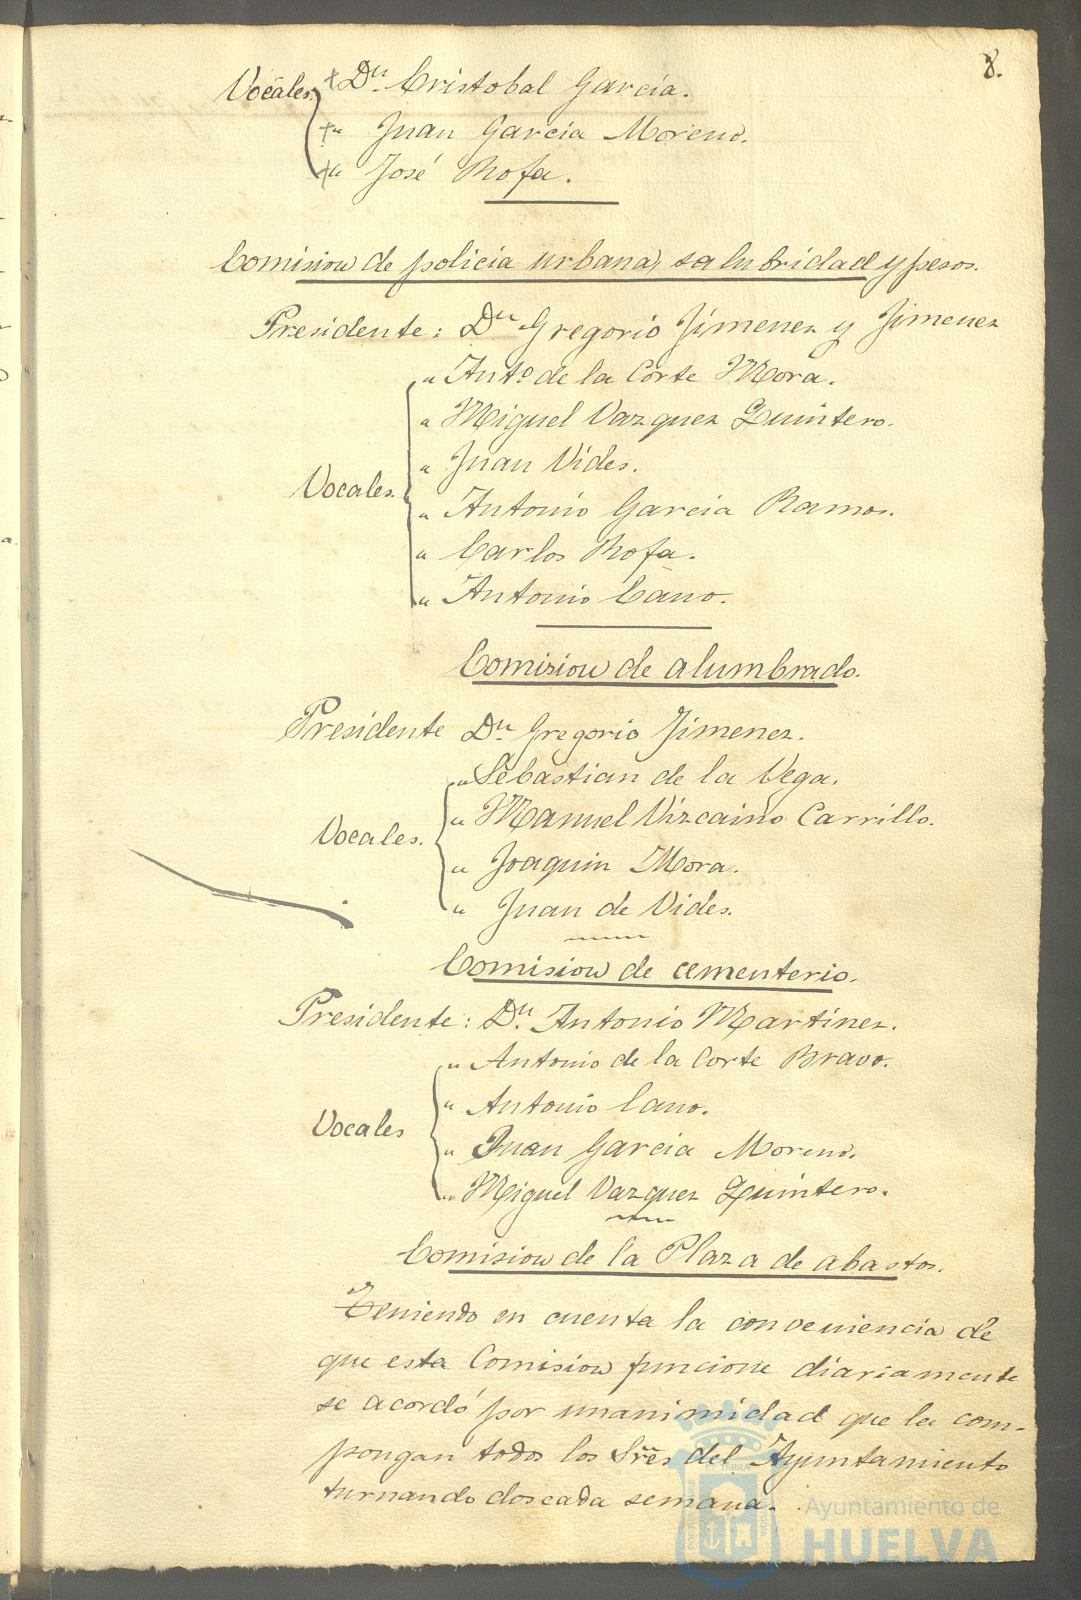 8.
Vocales. Dn. Cristobal García.
" Juan García Moreno.
" José Rofa.
Comision de policia urbana, salubridad y pesos.
Presidente: Dn Gregorio Jimenez y Jimenez
" Anto. de la Corte Mora.
" Miguel Vazquez Quintero.
" Juan Vides.
Vocales.
" Antonio Garcia Ramos.
" Carlos Rofa.
" Antonio Cano.
Comision de alumbrado.
Presidente Dn. Gregorio Jimenez.
" Sebastian de la Vega.
" Manuel Vizcaino Carrillo.
Vocales.
" Joaquin Mora.
" Juan de Vides.
Comision de cementerio.
Presidente: Dn. Antonio Martinez.
" Antonio de la Corte Bravo.
" Antonio Cano.
Vocales
" Juan Garcia Moreno.
" Miguel Vazquez Quintero.
Comision de la Plaza de abastos.
Teniendo en cuenta la conveniencia de
que esta Comision funcione diariamente
se acordó por unanimidad que la com-
pongan todos los Sres del Ayuntamiento
turnando dos cada semana.
Ayuntamiento de
HUELVA